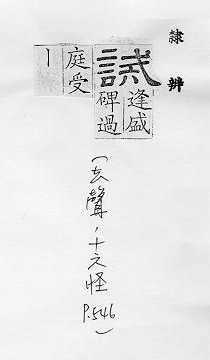 隸辨
誡
逢盛
碑過
庭受
丨
(去聲,十六怪 P.546)